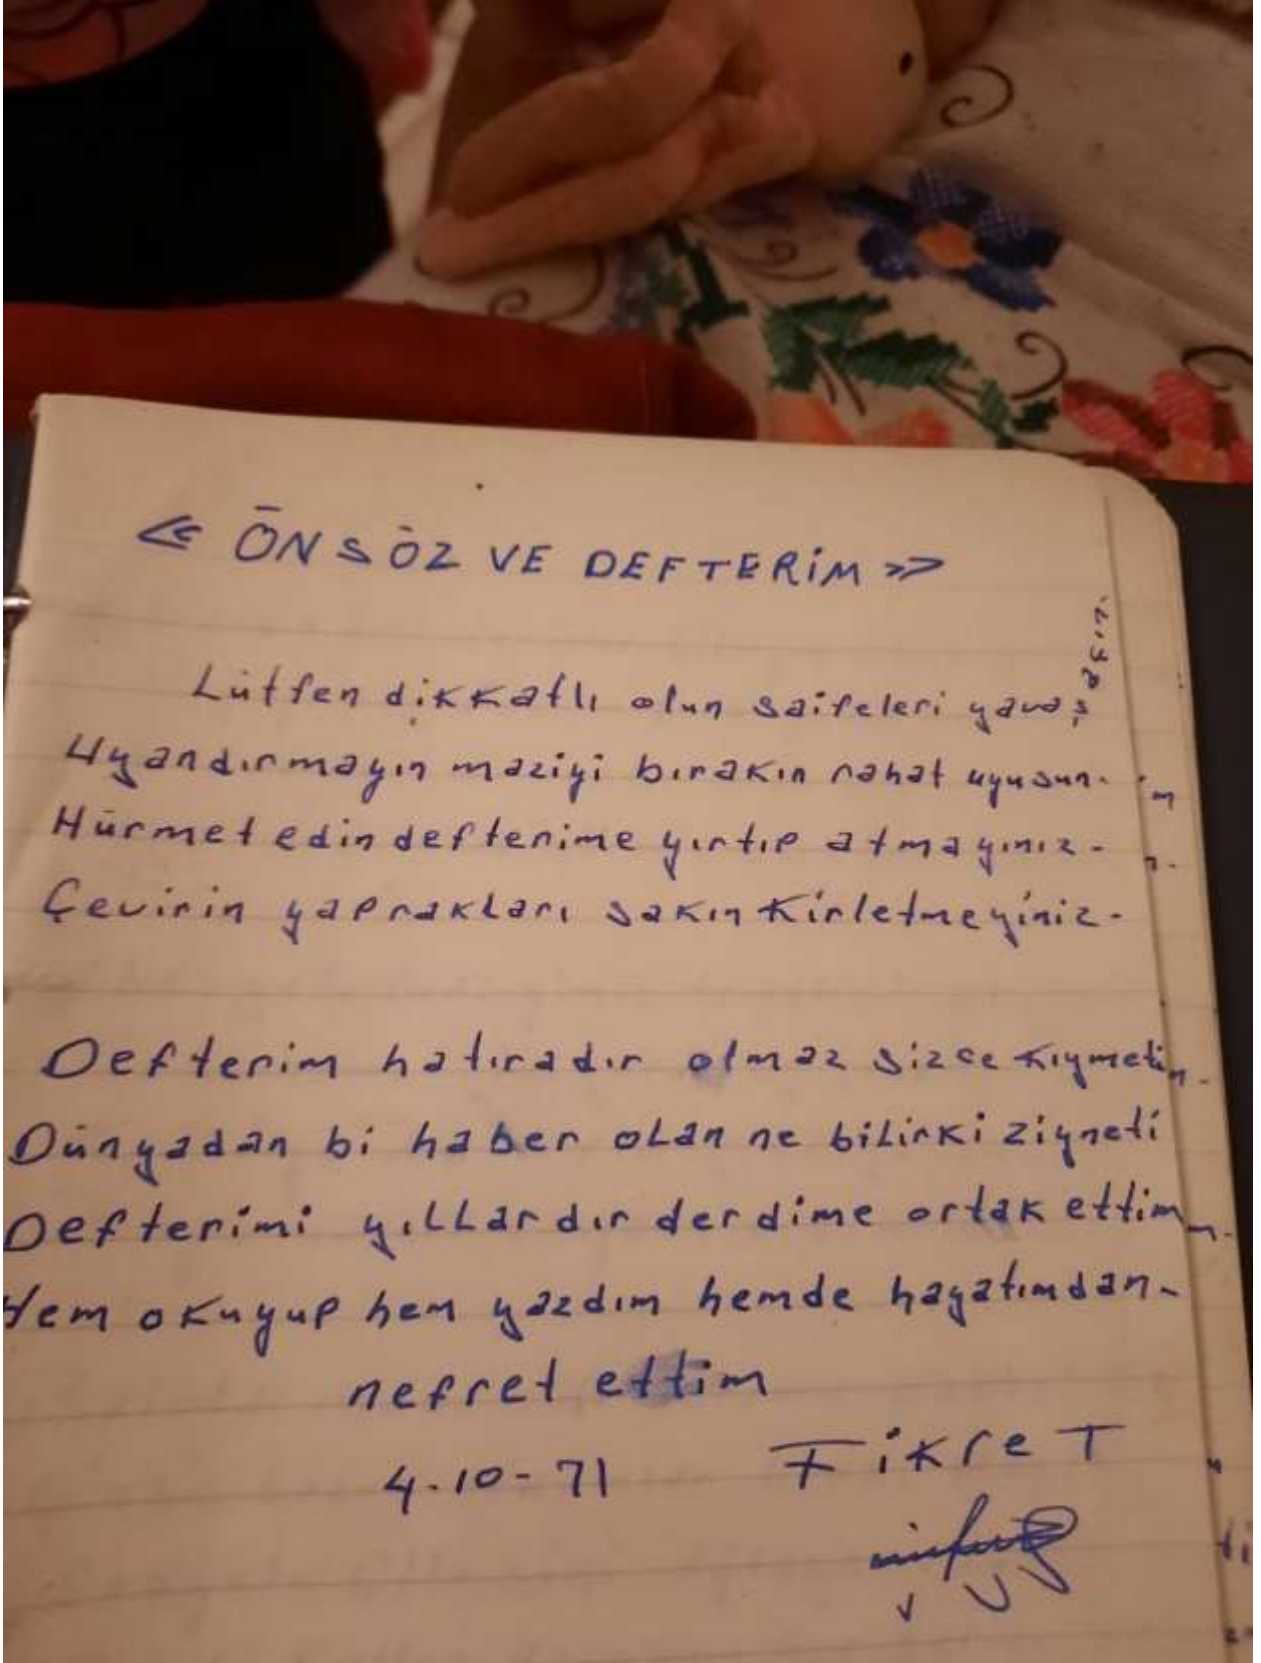 « ÖNSÖZ VE DEFTERİM »
Lütfen dikkatlı olun saifeleri yavaş
açınız.
Uyandırmayın maziyi bırakın rahat uyusun.
Hürmet edin defterime yırtıp atmayınız.
Çevirin yaprakları sakın kirletmeyiniz.
Defterim hatıradır olmaz sizce kıymetin
Dünyadan bi haber olan ne bilirki ziyneti
Defterimi yıllardır derdime ortak ettim
Hem okuyup hem yazdım hemde hayatımdan
nefret ettim
4.10-71 FikreT